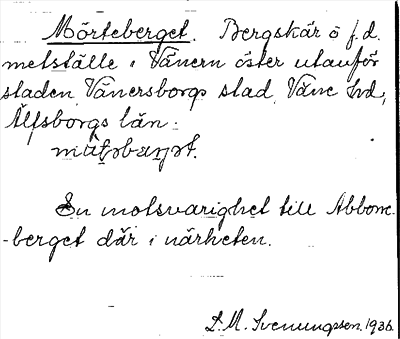 Mörteberget. Bergskär o f.d.
metställe i Vänern öster utanför
staden Vänersborgs stad, Väne hd,
Älfsborgs län.
En motsvarighet till Abborre-
-berget där i närheten.
D. M. Svenungsson. 1936.